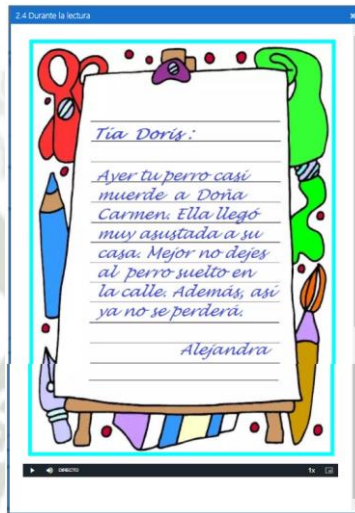 2.4 Durante la lectura
Tía Doris:
Ayer tu perro casi
muerde a Doña
Carmen. Ella llegó
muy asustada a su
casa. Mejor no dejes
al perro suelto en
la calle. Además, así
ya no se perderá.
Alejandra
DIRECTO
1x